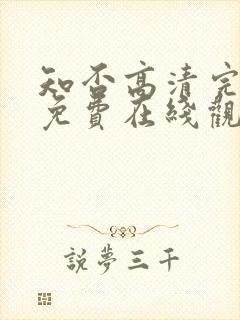 知否高清完
免費在綫觀
說夢三千